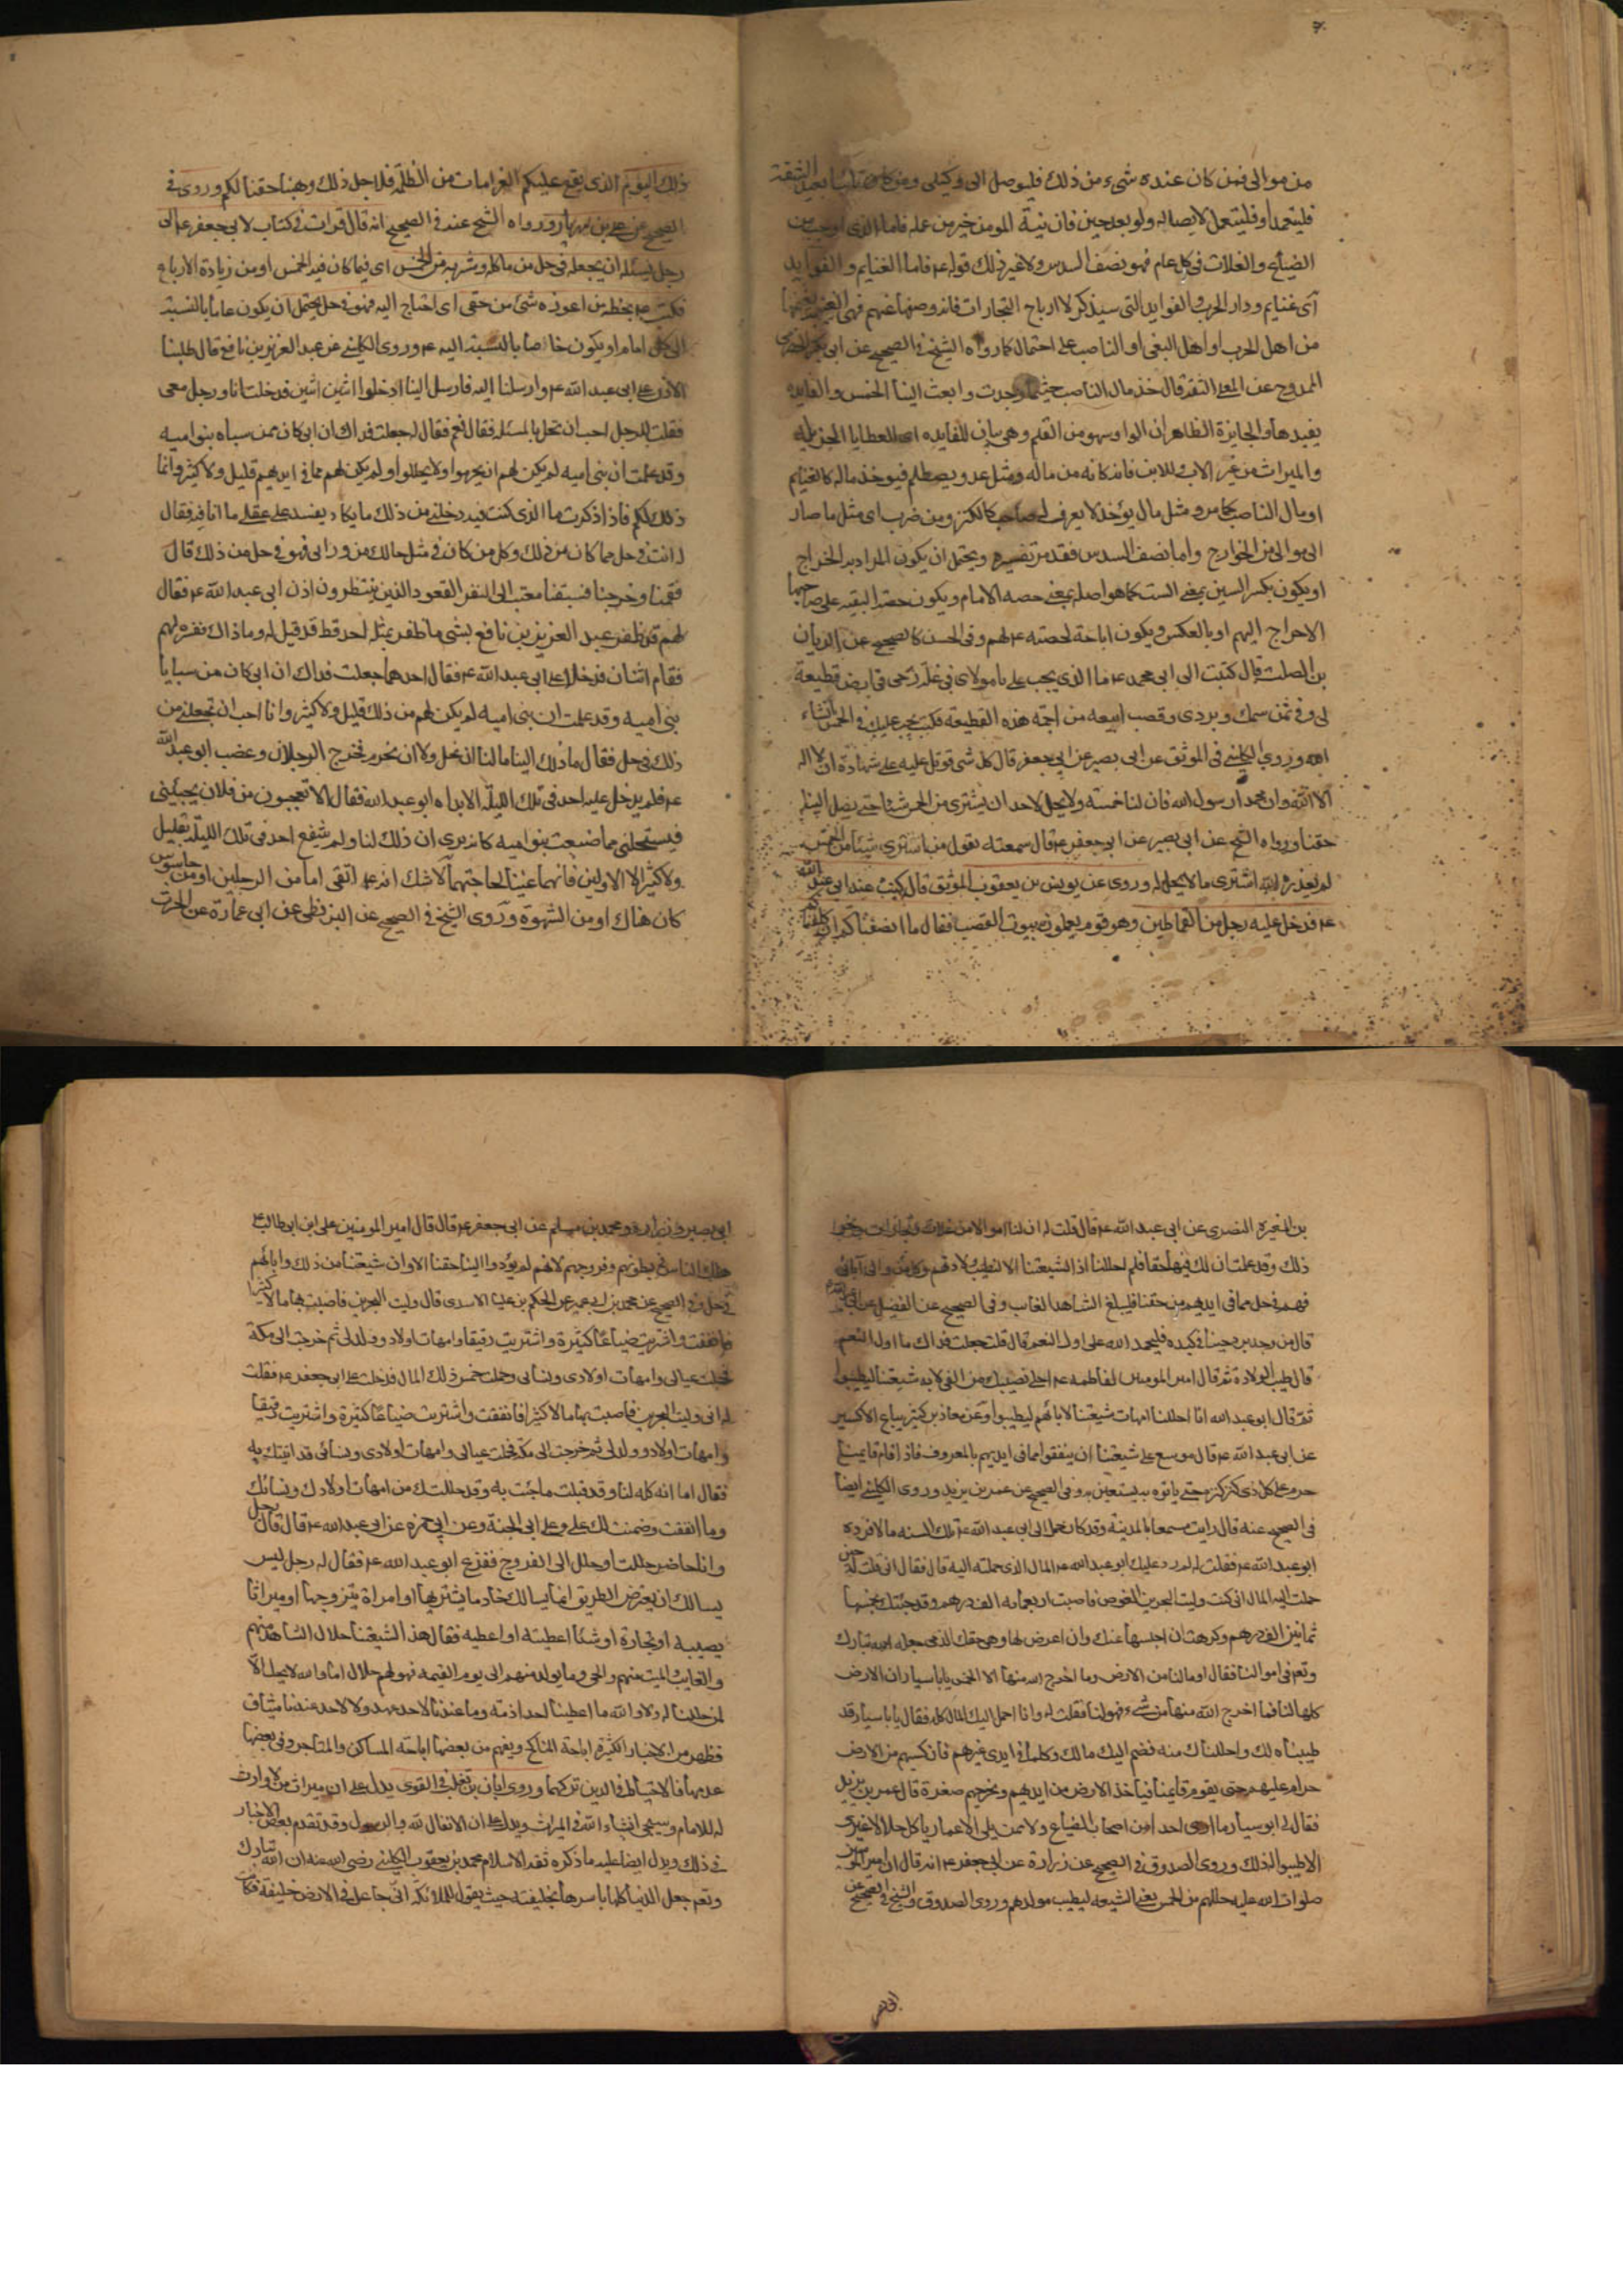 من موالى فمن كان عنده شىء من ذلك فليوصل الى وكيلى ومن كان نائيا بعيد الشقة
فليتعمد اوفليتعمل لايصاله ولو بعد حين فان نية المومن خير من عمله فاما الذى اوجب من
الضياع والغلات فى كل عام فهو نصف السدس ولاغير ذلك قوله ع فاما الغنايم والفوايد
اى غنايم ودار الحرب والفوايد التى سيذكر لا ارباح التجارات فانه وضعها عنهم فهى الغنيمة يغنمها
من اهل الحرب او اهل البغى او الناصب على احتمال كما رواه الشيخ فى الصحيح عن ابى بكر الحضرمى
الممدوح عن المعلى الثقة قال خذ مال الناصب حيثما وجدت وابعث الينا الخمس والفايدة
يفيدها والجايزة الظاهر ان الواو سهو من القلم وهى بيان للفايده اى العطايا الجزيله
والميراث من غير الاب للابن فانه كانه من ماله ومثل عدو يصطلم فيوخذ ماله كالغنايم
او مال الناصب كما مر ومثل مال يؤخذ لا يعرف له صاحب كالكنز ومن ضرب اى مثل ما صار
الى موالى من الخوارج واما نصف السدس فقد مر تفسيره ويحتمل ان يكون المراد به الخراج
او يكون بكسر السين بمعنى الست كما هو اصله بمعنى حصه الامام ويكون حصة البقيه على صاحبها
الاخراج اليهم او بالعكس ويكون اباحة لحصته ع لهم وفى الحسن كالصحيح عن الريان
بن الصلت قال كتبت الى ابى محمد ع ما الذى يجب على يا مولاى فى غلة رحى فى ارض قطيعة
لى وفى ثمن سمك وبردى وقصب ابيعه من اجمة هذه القطيعة فكتب يجب عليك فيه الخمس انشاء
الله وروي الكلينى فى الموثق عن ابى بصير عن ابى جعفر قال كل شى قوتل عليه على شهادة ان لا اله
الا الله وان محمدا رسول الله فان لنا خمسه ولا يحل لاحد ان يشترى من الخمس شيئا حتى يصل الينا
حقنا ورواه الشيخ عن ابى بصير عن ابى جعفر ع قال سمعته يقول من اشترى شيئا من الخمس
لم يعذره الله اشترى ما لا يحل له وروى عن يونس بن يعقوب الموثق قال كنت عند ابى عبد الله
ع فدخل عليه رجل من القماطين وهو قوم يعملون بيوت القصب فقال ما انصفناكم ان كلفناكم
ذلك اليوم الذى يقع عليكم الغرامات من الظلمه فلاجل ذلك وهبنا حقنا لكم وروى فى
الصحيح عن على بن مهزيار ورواه الشيخ عنه فى الصحيح انه قال قرات فى كتاب لابى جعفر ع الى
رجل يسئله ان يجعله فى حل من ماكله ومشربه من الخمس اى فيما كان فيه الخمس او من زيادة الارباع
فكتب ع بخطه من اعوزه شئ من حقى اى احتاج اليه فهو فى حل يحتمل ان يكون عاما بالنسبة
الى كل امام او يكون خاصا بالنسبة اليه ع وروى الكلينى عن عبد العزيز بن نافع قال طلبنا
الاذن على ابى عبد الله ع وارسلنا اليه فارسل الينا ادخلوا اثنين اثنين فدخلت انا ورجل معى
فقلت للرجل احب ان تحل بالمسئله فقال نعم فقال له جعلت فداك ان ابى كان ممن سباه بنو اميه
وقد علمت ان بنى اميه لم يكن لهم ان يحرموا ولا يحللوا ولم يكن لهم مما فى ايديهم قليل ولا كثير وانما
ذلك لكم فاذا ذكرت ما الذى كنت فيه دخلنى من ذلك ما يكاد يفسد على عقلى ما انا فيه فقال
له انت فى حل مما كان من ذلك وكل من كان فى مثل حالك من ورائى فهو فى حل من ذلك قال
فقمنا وخرجنا فسبقنا معتب الى النفر القعود الذين ينتظرون اذن ابى عبد الله ع فقال
لهم قد ظفر عبد العزيز بن نافع بشى ما ظفر بمثله احد قط قد قيل له وما ذاك ففسره لهم
فقام اثنان فدخلا على ابى عبد الله ع فقال احدهما جعلت فداك ان ابى كان من سبايا
بنى اميه وقد علمت ان بنى اميه لم يكن لهم من ذلك قليل ولا كثير وانا احب ان تجعلنى من
ذلك فى حل فقال ما ذلك الينا ما لنا ان نحل ولا ان نحرم فخرج الرجلان وغضب ابو عبد الله
ع فلم يدخل عليه احد فى تلك الليلة الا بداه ابو عبد الله فقال الا تعجبون من فلان يجيئنى
فيستحلنى مما صنعت بنو اميه كانه يرى ان ذلك لنا ولم ينتفع احد فى تلك الليلة بقليل
ولا كثير الا الاولين فانهما غنيا لحاجتهما لا شك انه ع اتقى اما من الرجلين او من جاسوس
كان هناك او من الشهوة وروى الشيخ فى الصحيح عن البزنطى عن ابى عمارة عن الحرث
بن المغيرة النصرى عن ابى عبد الله ع قال قلت له ان لنا اموالا من غلات وتجارات ونحو
ذلك وقد علمت ان لك فيها حقا قال فلم احللنا اذا لشيعتنا الا لتطيب ولادتهم وكل من والى آبائى
فهم فى حل مما فى ايديهم من حقنا فليبلغ الشاهد الغايب وفى الصحيح عن الفضيل عن ابى عبد الله ع
قال من وجد برد حبنا فى كبده فليحمد الله على اول النعم قال قلت جعلت فداك ما اول النعم
قال طيب الولادة ثم قال امير المومنين لفاطمه ع احلى نصيبك من الفى لابه شيعتنا ليطيبوا
ثم قال ابو عبد الله انا احللنا امهات شيعتنا لابائهم ليطيبوا وعن معاذ بن كثير بياع الاكسيه
عن ابى عبد الله ع قال موسع على شيعتنا ان ينفقوا مما فى ايديهم بالمعروف فاذا قام قايمنا
حرم على كل ذى كنز كنزه حتى ياتوه به يستعين به وفى الصحيح عن عمر بن يزيد وروى الكلينى ايضا
فى الصحيح عنه قال رايت مسمعا بالمدينة وقد كان حمل الى ابى عبد الله ع تلك السنه مالا فرده
ابو عبد الله ع فقلت له لم رد عليك ابو عبد الله ع المال الذى حملته اليه قال فقال انى قلت له حين
حملت اليه المال انى كنت وليت البحرين الغوص فاصبت اربعمائه الف درهم وقد جئتك بخمسها
ثمانين الف درهم وكرهت ان احبسها عنك وان اعرض لها وهى حقك الذى جعله الله تبارك
وتع فى اموالنا فقال او ما لنا من الارض وما اخرج الله منها الا الخمس يا با سيار ان الارض
كلها لنا فما اخرج الله منها من شىء فهو لنا فقلت له وانا احمل اليك المال كله فقال يا با سيار قد
طيبناه لك واحللناك منه فضم اليك مالك وكلما فى ايدى غيرهم فان كسبهم من الارض
حرام عليهم حتى يقوم قايمنا فياخذ الارض من ايديهم ويخرجهم صغرة قال عمر بن يزيد
فقال لى ابو سيار ما ارى احدا من اصحاب الضياع ولا ممن يلى الاعمار ياكل حلالا غيرى
الا من طيبوا له ذلك وروى الصدوق فى الصحيح عن زرارة عن ابى جعفر ع انه قال ان امير المومنين
صلوات الله عليه حللهم من الخمس يعنى الشيعه ليطيب مولدهم وروى الصدوق والشيخ فى الصحيح عن
ابى بصير وزرارة ومحمد بن مسلم عن ابى جعفر ع قال قال امير المومنين على ابن ابى طالب ع
هلك الناس فى بطونهم وفروجهم لانهم لم يؤدوا الينا حقنا الا وان شيعتنا من ذلك وابائهم
فى حل وفى الصحيح عن محمد بن ابى عمير عن الحكم بن عليا الاسدى قال وليت البحرين فاصبت بها مالا كثيرا
فانفقت واشتريت ضياعا كثيرة واشتريت رقيقا وامهات اولاد وولد لى ثم خرجت الى مكة
فحملت عيالى وامهات اولادى ونسائى وحملت خمس ذلك المال فدخلت على ابى جعفر ع فقلت
له انى وليت البحرين فاصبت بها مالا كثيرا فانفقت واشتريت ضياعا كثيرة واشتريت رقيقا
وامهات اولاد وولد لى ثم خرجت الى مكة فحملت عيالى وامهات اولادى ونسائى وقد اتيتك به
فقال اما انه كله لنا وقد قبلت ما جئت به وقد حللتك من امهات اولادك ونسائك
وما انفقت وضمنت لك على وعلى ابى الجنة وعن ابى حمزه عن ابى عبد الله ع قال قال رجل
وانا حاضر حللت او حلل الى الفروج ففزع ابو عبد الله ع فقال له رجل ليس
يسالك ان يعترض الطريق انما يسالك خادما يشتريها او امراة يتزوجها او ميراثا
يصيبه او تجارة او شئا اعطيته او اعطيه فقال هذا لشيعتنا حلال الشاهد منهم
والغايب والميت منهم والحى وما يولد منهم الى يوم القيمه فهو لهم حلال اما والله لا يحل الا
لمن حللنا له ولا والله ما اعطينا احدا ذمة وما عندنا لاحد عهد ولا لاحد عندنا ميثاق
فظهر من الاخبار الكثيرة اباحة المناكح ويفهم من بعضها اباحة المساكن والمتاجر وفى بعضها
عدمها فالاحتياط فى الدين تركهما وروى ابان بن تغلب فى القوى يدل على ان ميراث من لا وارث
له للامام وسيجى انشاء الله فى الميراث ويدل على ان الانفال لله والرسول وقد تقدم بعض الاخبار
فى ذلك ويدل ايضا عليه ما ذكره ثقة الاسلام محمد بن يعقوب الكلينى رضى الله عنه ان الله تبارك
وتع جعل الدنيا كلها باسرها لخليفته حيث يقول للملائكة انى جاعل فى الارض خليفة فكانت